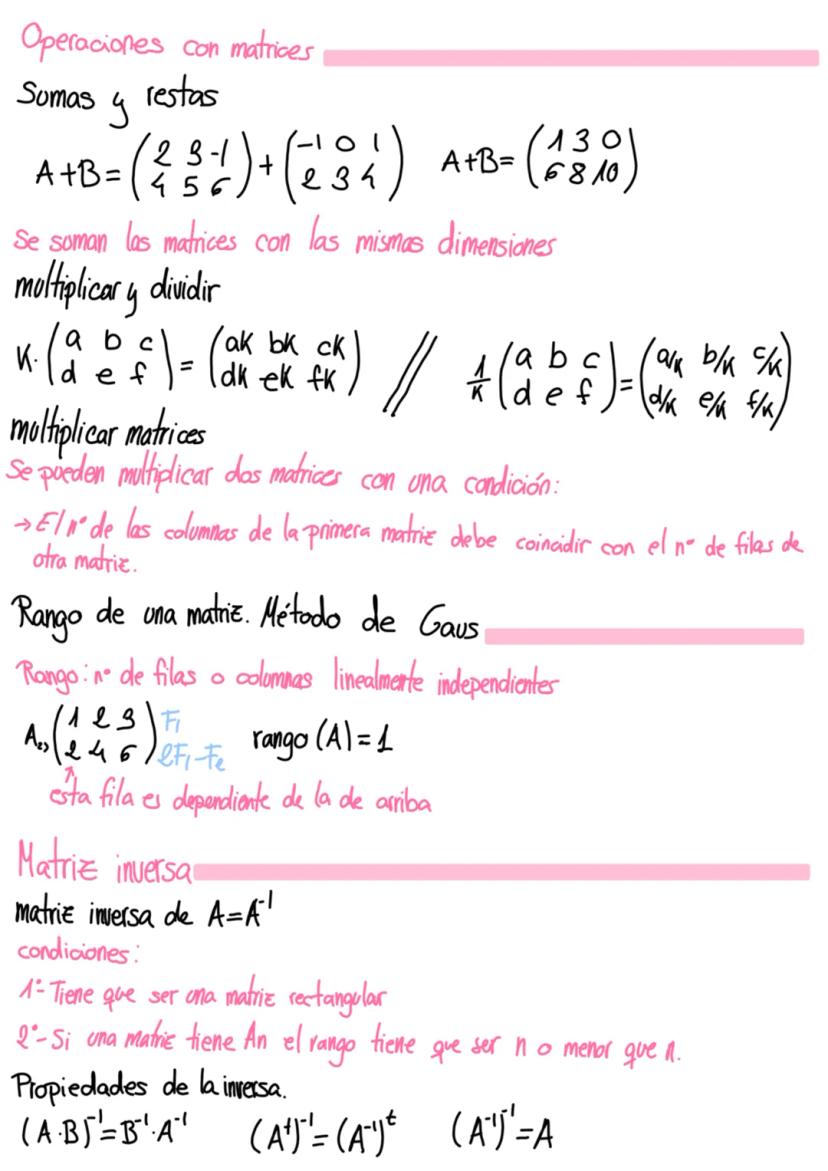 Operaciones con matrices
Somas y restas
A+B=(2 3 -1 / 4 5 6)+(-1 0 1 / 2 3 4) A+B=(1 3 0 / 6 8 10)
Se suman las matrices con las mismas dimensiones
multiplicar y dividir
K·(a b c / d e f)=(aK bK cK / dK eK fK) // 1/K (a b c / d e f)=(a/K b/K c/K / d/K e/K f/K)
multiplicar matrices
Se pueden multiplicar dos matrices con una condición:
→El nº de las columnas de la primera matriz debe coincidir con el nº de filas de
otra matriz.
Rango de una matriz. Método de Gaus
Rango: nº de filas o columnas linealmente independientes
A₂,₃(1 2 3 / 2 4 6) F₁ 2F₁-F₂ rango (A)=1
esta fila es dependiente de la de arriba
Matriz inversa
matriz inversa de A=A⁻¹
condiciones:
1º- Tiene que ser una matriz rectangular
2º- Si una matriz tiene An el rango tiene que ser n o menor que n.
Propiedades de la inversa.
(A·B)⁻¹=B⁻¹·A⁻¹ (Aᵗ)⁻¹=(A⁻¹)ᵗ (A⁻¹)⁻¹=A